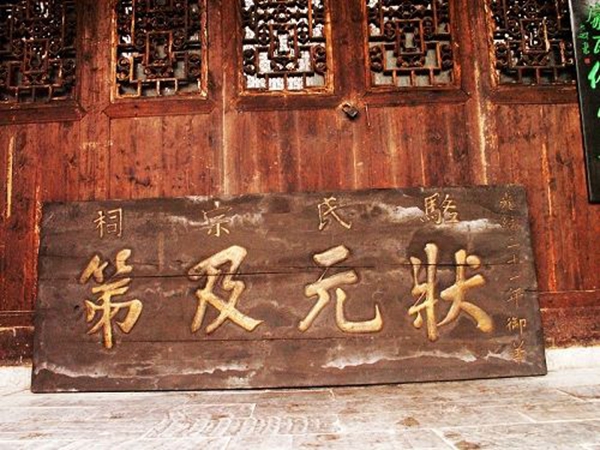 駱氏宗祠
狀元及第
二十一年 御